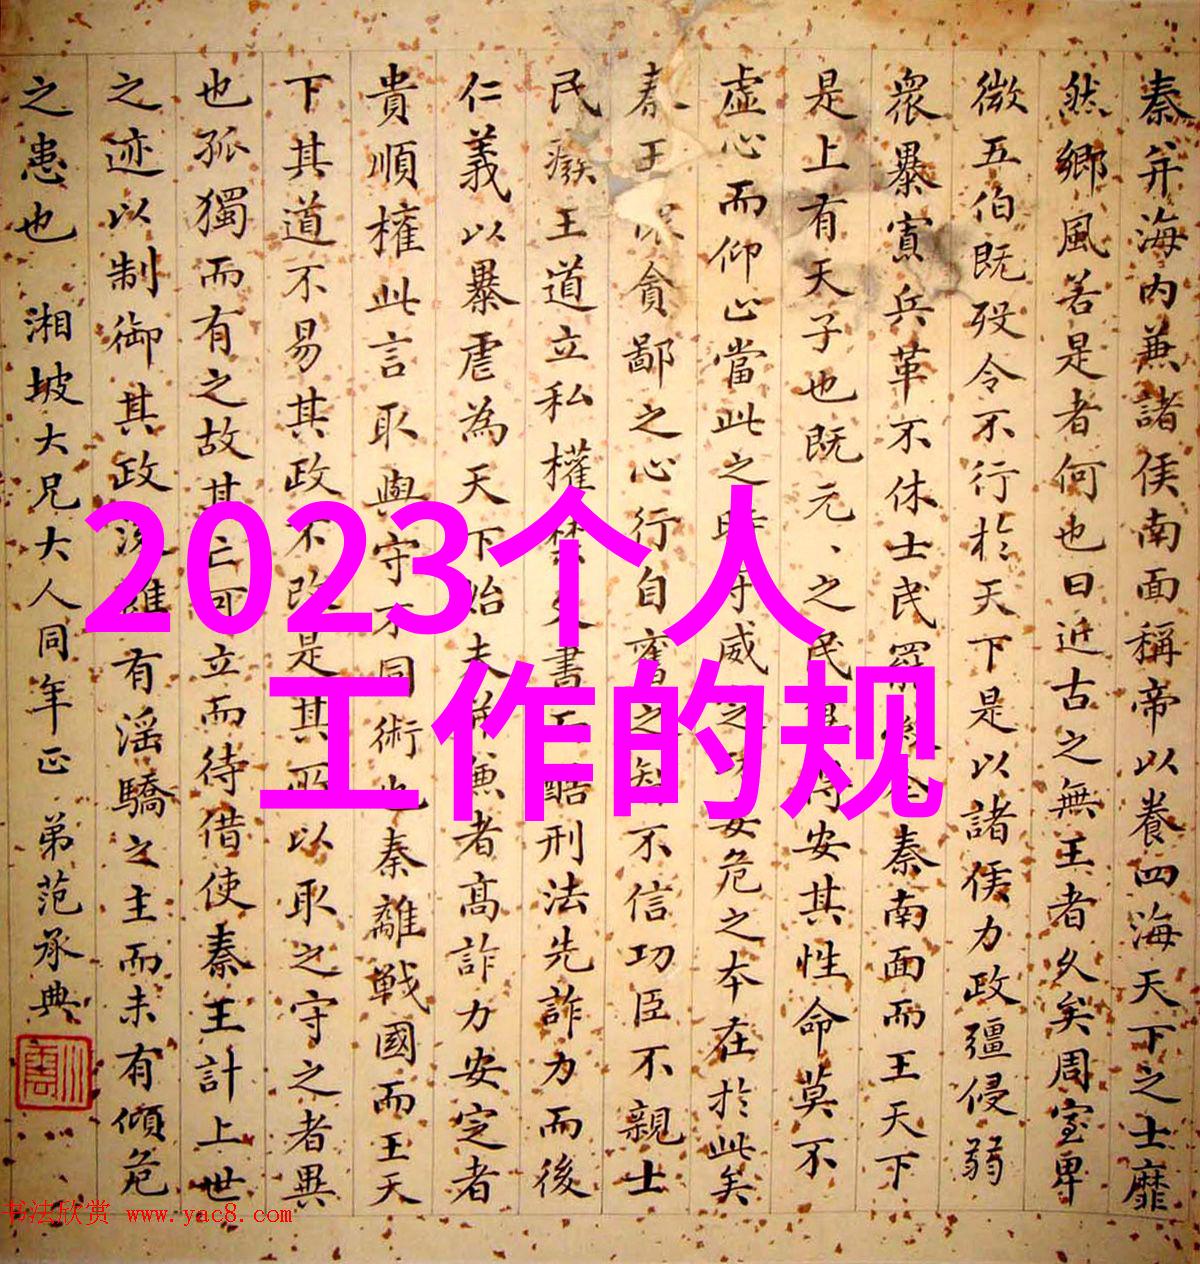 秦并海内兼諸侯南面稱帝以養四海天下之士靡
然鄉風若是者何也曰近古之無王者久矣周室卑
微五伯既歿令不行於天下是以諸侯力政彊侵弱
衆暴寡兵革不休士民罷 今秦南面而王天下
是上有天子也既元、之民 得安其性命莫不
虛心而仰上當此之時守威 之 安危之本在於此矣
秦王 貪鄙之心行自奮之知不信功臣不親士
民廢王道立私權禁文書而酷刑法先詐力而後
仁義以暴虐為天下始夫 兼者高詐力安定者
貴順權此言取與守不同術也秦離戰國而王天
下其道不易其政不改是其所以取之守之者異
也孤獨而有之故其亡可立而待借使秦王計上世
之迹以制御其政 雖有淫驕之主而未有傾危
之患也 湘坡大兄大人同年正 弟范承典
2023个人
工作的规
书法欣赏 www.yac8.com